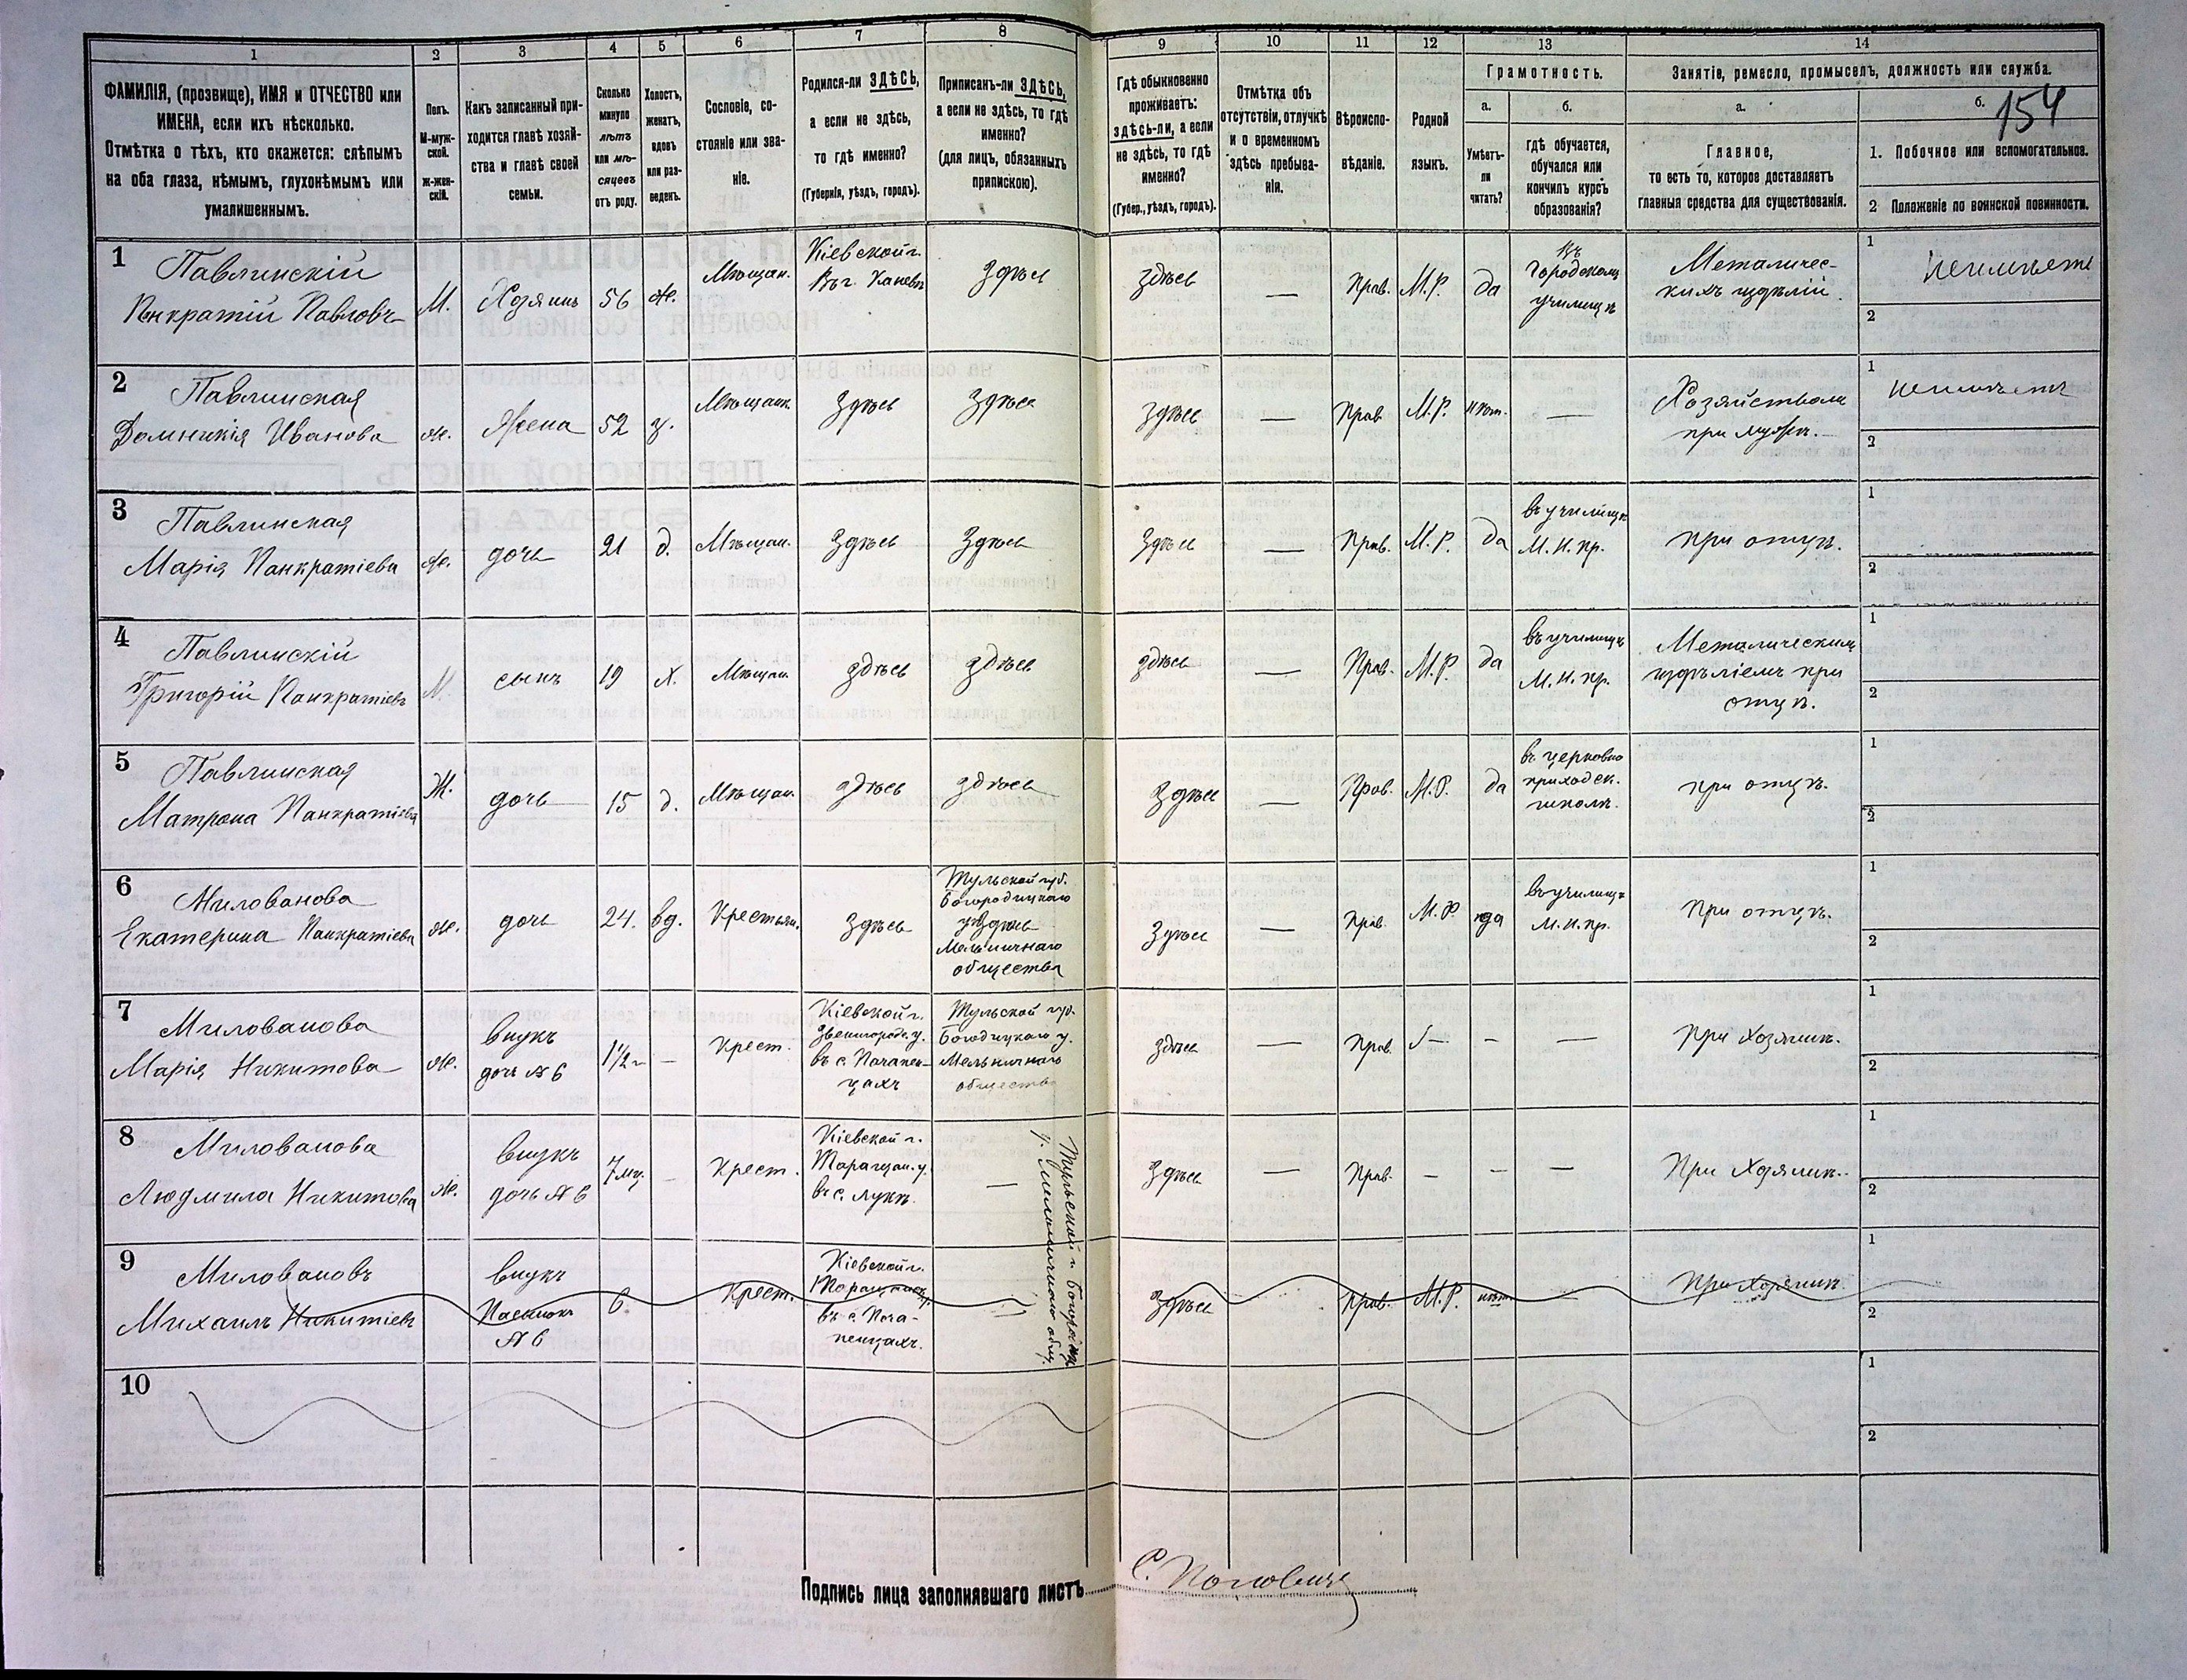 1 2 3 4 5 6 7 8 9 10 11 12 13 14
ФАМИЛІЯ, (прозвище), ИМЯ и ОТЧЕСТВО или
ИМЕНА, если ихъ нѣсколько.
Отмѣтка о тѣхъ, кто окажется: слѣпымъ
на оба глаза, нѣмымъ, глухонѣмымъ или
умалишеннымъ.
Полъ.
М-муж-
ской.
Ж-жен-
скій.
Какъ записанный при-
ходится главѣ хозяй-
ства и главѣ своей
семьи.
Сколько
минуло
лѣтъ
или мѣ-
сяцевъ
отъ роду.
Холостъ,
женатъ,
вдовъ
или раз-
веденъ.
Сословіе, со-
стояніе или зва-
ніе.
Родился-ли ЗДѢСЬ,
а если не здѣсь,
то гдѣ именно?
(Губернія, уѣздъ, городъ).
Приписанъ-ли ЗДѢСЬ,
а если не здѣсь, то гдѣ
именно?
(для лицъ, обязанныхъ
припискою).
Гдѣ обыкновенно
проживаетъ:
здѣсь-ли, а если
не здѣсь, то гдѣ
именно?
(Губер., уѣздъ, городъ).
Отмѣтка объ
отсутствіи, отлучкѣ
и о временномъ
здѣсь пребыва-
ніи.
Вѣроиспо-
вѣданіе.
Родной
языкъ.
Грамотность.
а.
Умѣетъ-
ли
читать?
б.
гдѣ обучается,
обучался или
кончилъ курсъ
образованія?
Занятіе, ремесло, промыселъ, должность или служба.
а.
Главное,
то есть то, которое доставляетъ
главныя средства для существованія.
б.
154
1. Побочное или вспомогательное.
2 Положеніе по воинской повинности.
1
Павлинскій
Панкратій Павловъ
М.
Хозяинъ
56
ж.
Мѣщан.
Кіевской г.
Въ г. Каневѣ
Здѣсь
здѣсь
—
Прав.
М.Р.
да
въ
городском
училищѣ
Металичес-
кихъ издѣлій.
1 неимѣетъ
2
2
Павлинская
Домникія Иванова
ж.
Жена
52
з.
Мѣщанк.
Здѣсь
Здѣсь
здѣсь
—
Прав
М.Р.
нѣт.
—
Хозяйством
при мужѣ.
1 неимѣетъ
2
3
Павлинская
Марія Панкратіева
ж.
дочь
21
д.
Мѣщан.
Здѣсь
Здѣсь
Здѣсь
—
Прав.
М.Р.
да
въ училищѣ
М. Н. пр.
при отцѣ.
1
2
4
Павлинскій
Григорій Панкратіевъ
М.
сынъ
19
х.
Мѣщан.
здѣсь
здѣсь
здѣсь
—
Прав.
М.Р.
да
въ училищѣ
М. Н. пр.
Металическим
издѣліемъ при
отцѣ.
1
2
5
Павлинская
Матрона Панкратіева
Ж.
дочь
15
д.
Мѣщан.
здѣсь
здѣсь
Здѣсь
—
Прав.
М.Р.
да
въ церковно
приходск.
школѣ.
при отцѣ.
1
2
6
Милованова
Екатерина Панкратіева
ж.
дочь
24.
вд.
Крестьян.
Здѣсь
Тульской губ.
Богородицкаго
Мельничнаго
общества
Здѣсь
—
Прав.
М.Р
да
въ училищѣ
М. Н. пр.
При отцѣ.
1
2
7
Милованова
Марія Никитова
ж.
внукъ
дочь № 6
1½ г
—
Крест.
Кіевской г.
Звенигородс. у.
въ с. Почапен-
цахъ
Тульской гуд.
Богодицкаго у.
Мельничнаго
общества
здѣсь
—
Прав.
—
—
При Хозяинѣ.
1
2
8
Милованова
Людмила Никитова
ж.
внукъ
дочь № 6
7 мц.
—
Крест.
Кіевской г.
Таращан. у.
въ с. Лукѣ.
—
Тульской г. Богородиц.
у. Мельничнаго общ.
Здѣсь
—
Прав.
—
—
—
При Хозяинѣ.
1
2
9
Миловановъ
Михаилъ Никитіевъ
внукъ
Пасынокъ
№ 6
6.
Крест.
Кіевской г.
Таращанск. у.
въ с. Поча-
пенцахъ.
Здѣсь
Прав.
М.Р.
нѣт
—
При Хозяинѣ
1
2
10
1
2
Подпись лица заполнявшаго листъ